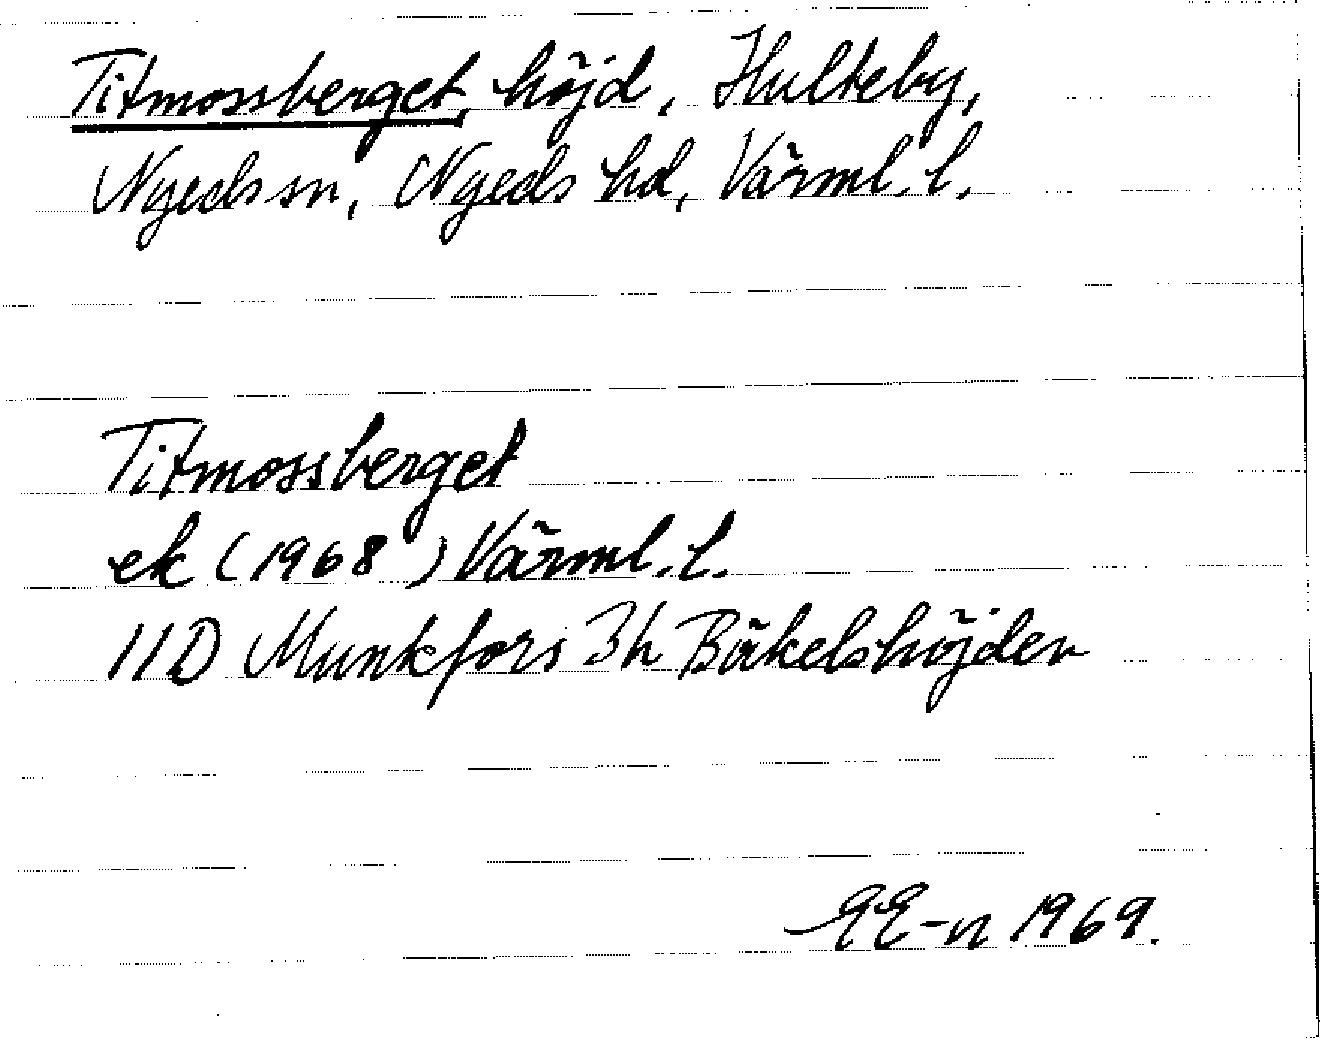 Titmossberget, höjd, Hulteby,
Nyeds sn, Nyeds hd, Värml. l.
Titmossberget
ek (1968) Värml. l.
11D Munkfors 3h Bäkelshöjden
EE-n 1969.